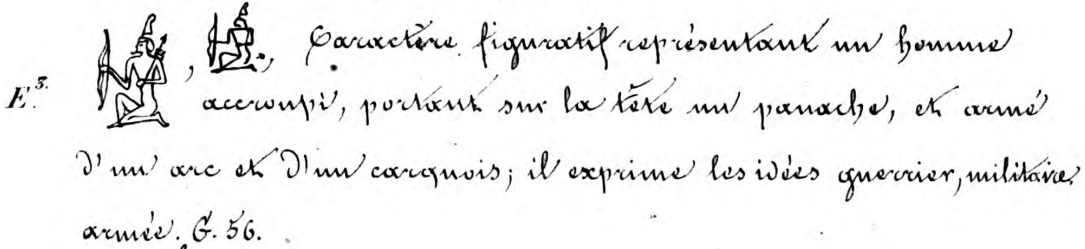 E³. , , Caractère figuratif représentant un homme
accroupi, portant sur la tête un panache, et armé
d'un arc et d'un carquois; il exprime les idées guerrier, militaire,
armée. G. 56.